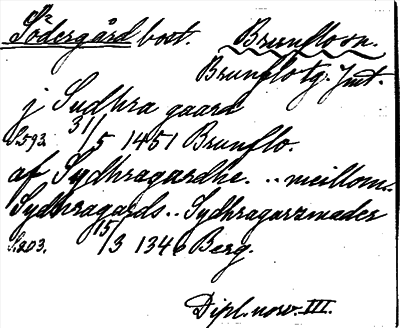 Södergård bost. Brunflo sn.
Brunflo tg. Jmt.
j Sudhra gaard
S.593. 31/5 1451 Brunflo.
af Sydhragardhe. .. meillom..
Sydhragards.. Sydhragarzmader
S.203. 15/3 1346 Berg.
Dipl. norv. III.